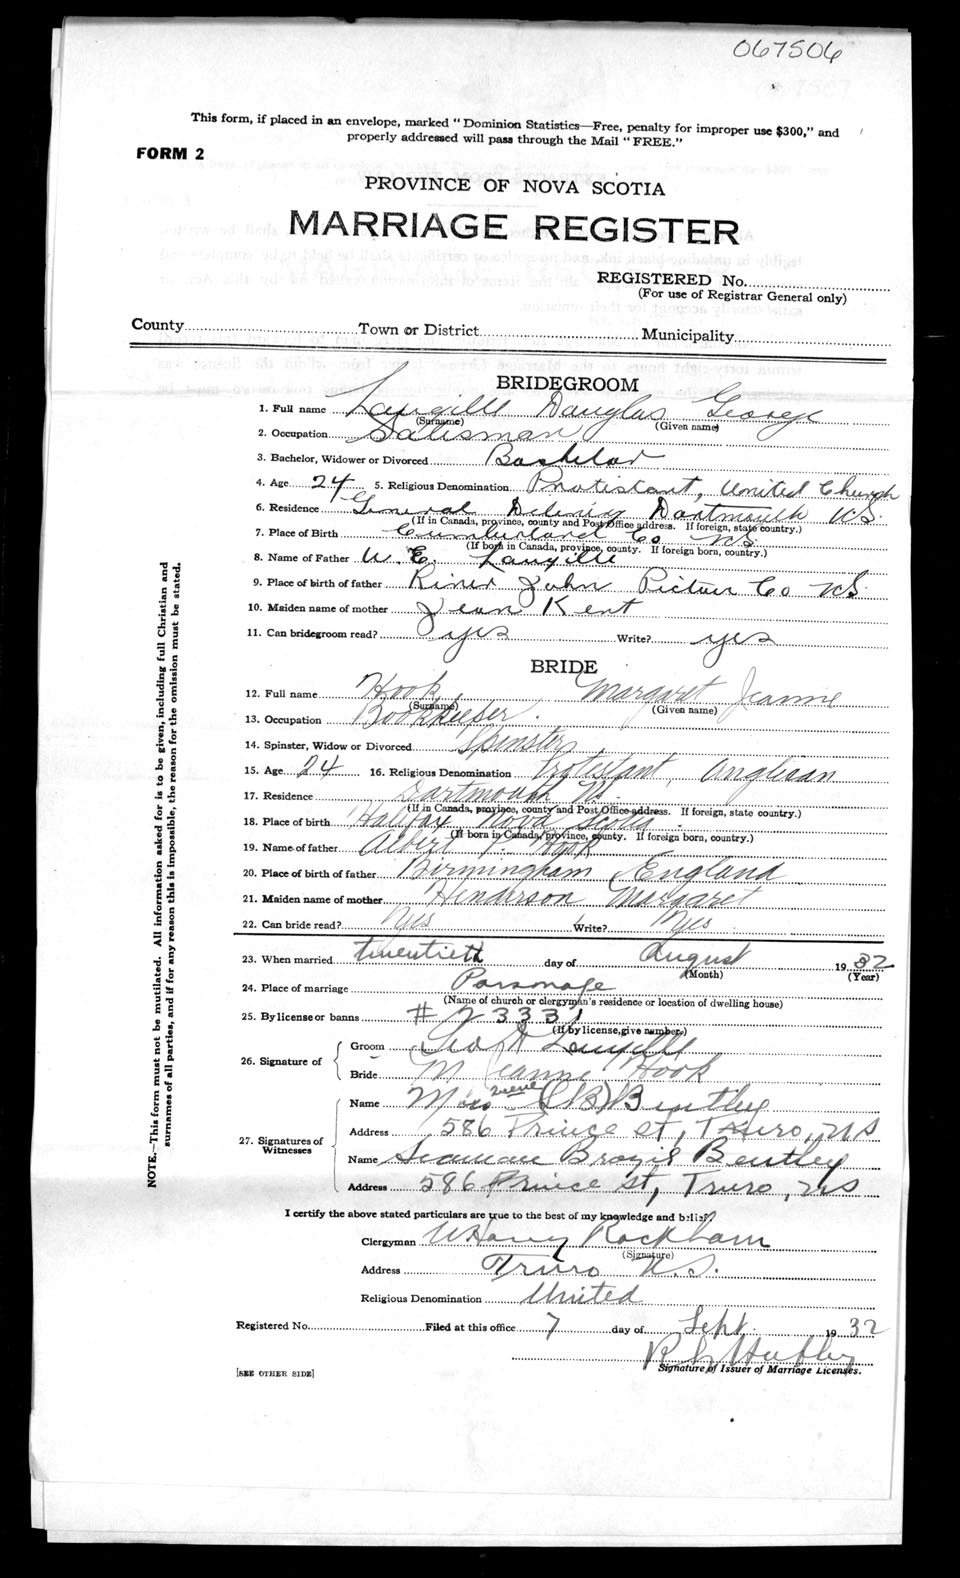 067506
This form, if placed in an envelope, marked "Dominion Statistics—Free, penalty for improper use $300," and
properly addressed will pass through the Mail "FREE."
FORM 2
PROVINCE OF NOVA SCOTIA
MARRIAGE REGISTER
REGISTERED No.
(For use of Registrar General only)
County Town or District Municipality
BRIDEGROOM
1. Full name Langille Douglas George
(Surname) (Given name)
2. Occupation Salesman
3. Bachelor, Widower or Divorced Bachelor
4. Age 24 5. Religious Denomination Protistant, United Church
6. Residence General Delivery Dartmouth N.S.
(If in Canada, province, county and Post Office address. If foreign, state country.)
7. Place of Birth Cumberland Co N.S.
(If born in Canada, province, county. If foreign born, country.)
8. Name of Father W. E. Langille
9. Place of birth of father River John Pictou Co N.S.
10. Maiden name of mother Jean Kent
11. Can bridegroom read? yes Write? yes
BRIDE
12. Full name Hook, Margaret Jeanne
(Surname) (Given name)
13. Occupation Bookkeeper.
14. Spinster, Widow or Divorced Spinster
15. Age 24 16. Religious Denomination Protestant, Anglican
17. Residence Dartmouth N.S.
(If in Canada, province, county and Post Office address. If foreign, state country.)
18. Place of birth Halifax Nova Scotia
(If born in Canada, province, county. If foreign born, country.)
19. Name of father Albert P. Hook
20. Place of birth of father Birmingham, England
21. Maiden name of mother Henderson Margaret
22. Can bride read? Yes Write? Yes
23. When married twentieth day of August 1932
(Month) (Year)
24. Place of marriage Parsonage
(Name of church or clergyman's residence or location of dwelling house)
25. By license or banns # 23331
(If by license, give number.)
26. Signature of Groom Geo D Langille
Bride M Jeanne Hook
27. Signatures of Witnesses Name (B) Bentley
Address 586 Prince St, Truro, N.S
Name Seaman Brazil Bentley
Address 586 Prince St, Truro, N.S
I certify the above stated particulars are true to the best of my knowledge and belief.
Clergyman W Harvey Rackham
(Signature)
Address Truro N.S.
Religious Denomination United
Registered No. Filed at this office 7 day of Sept. 1932
Signature of Issuer of Marriage Licenses.
[SEE OTHER SIDE]
NOTE.—This form must not be mutilated. All information asked for is to be given, including full Christian and
surnames of all parties, and if for any reason this is impossible, the reason for the omission must be stated.